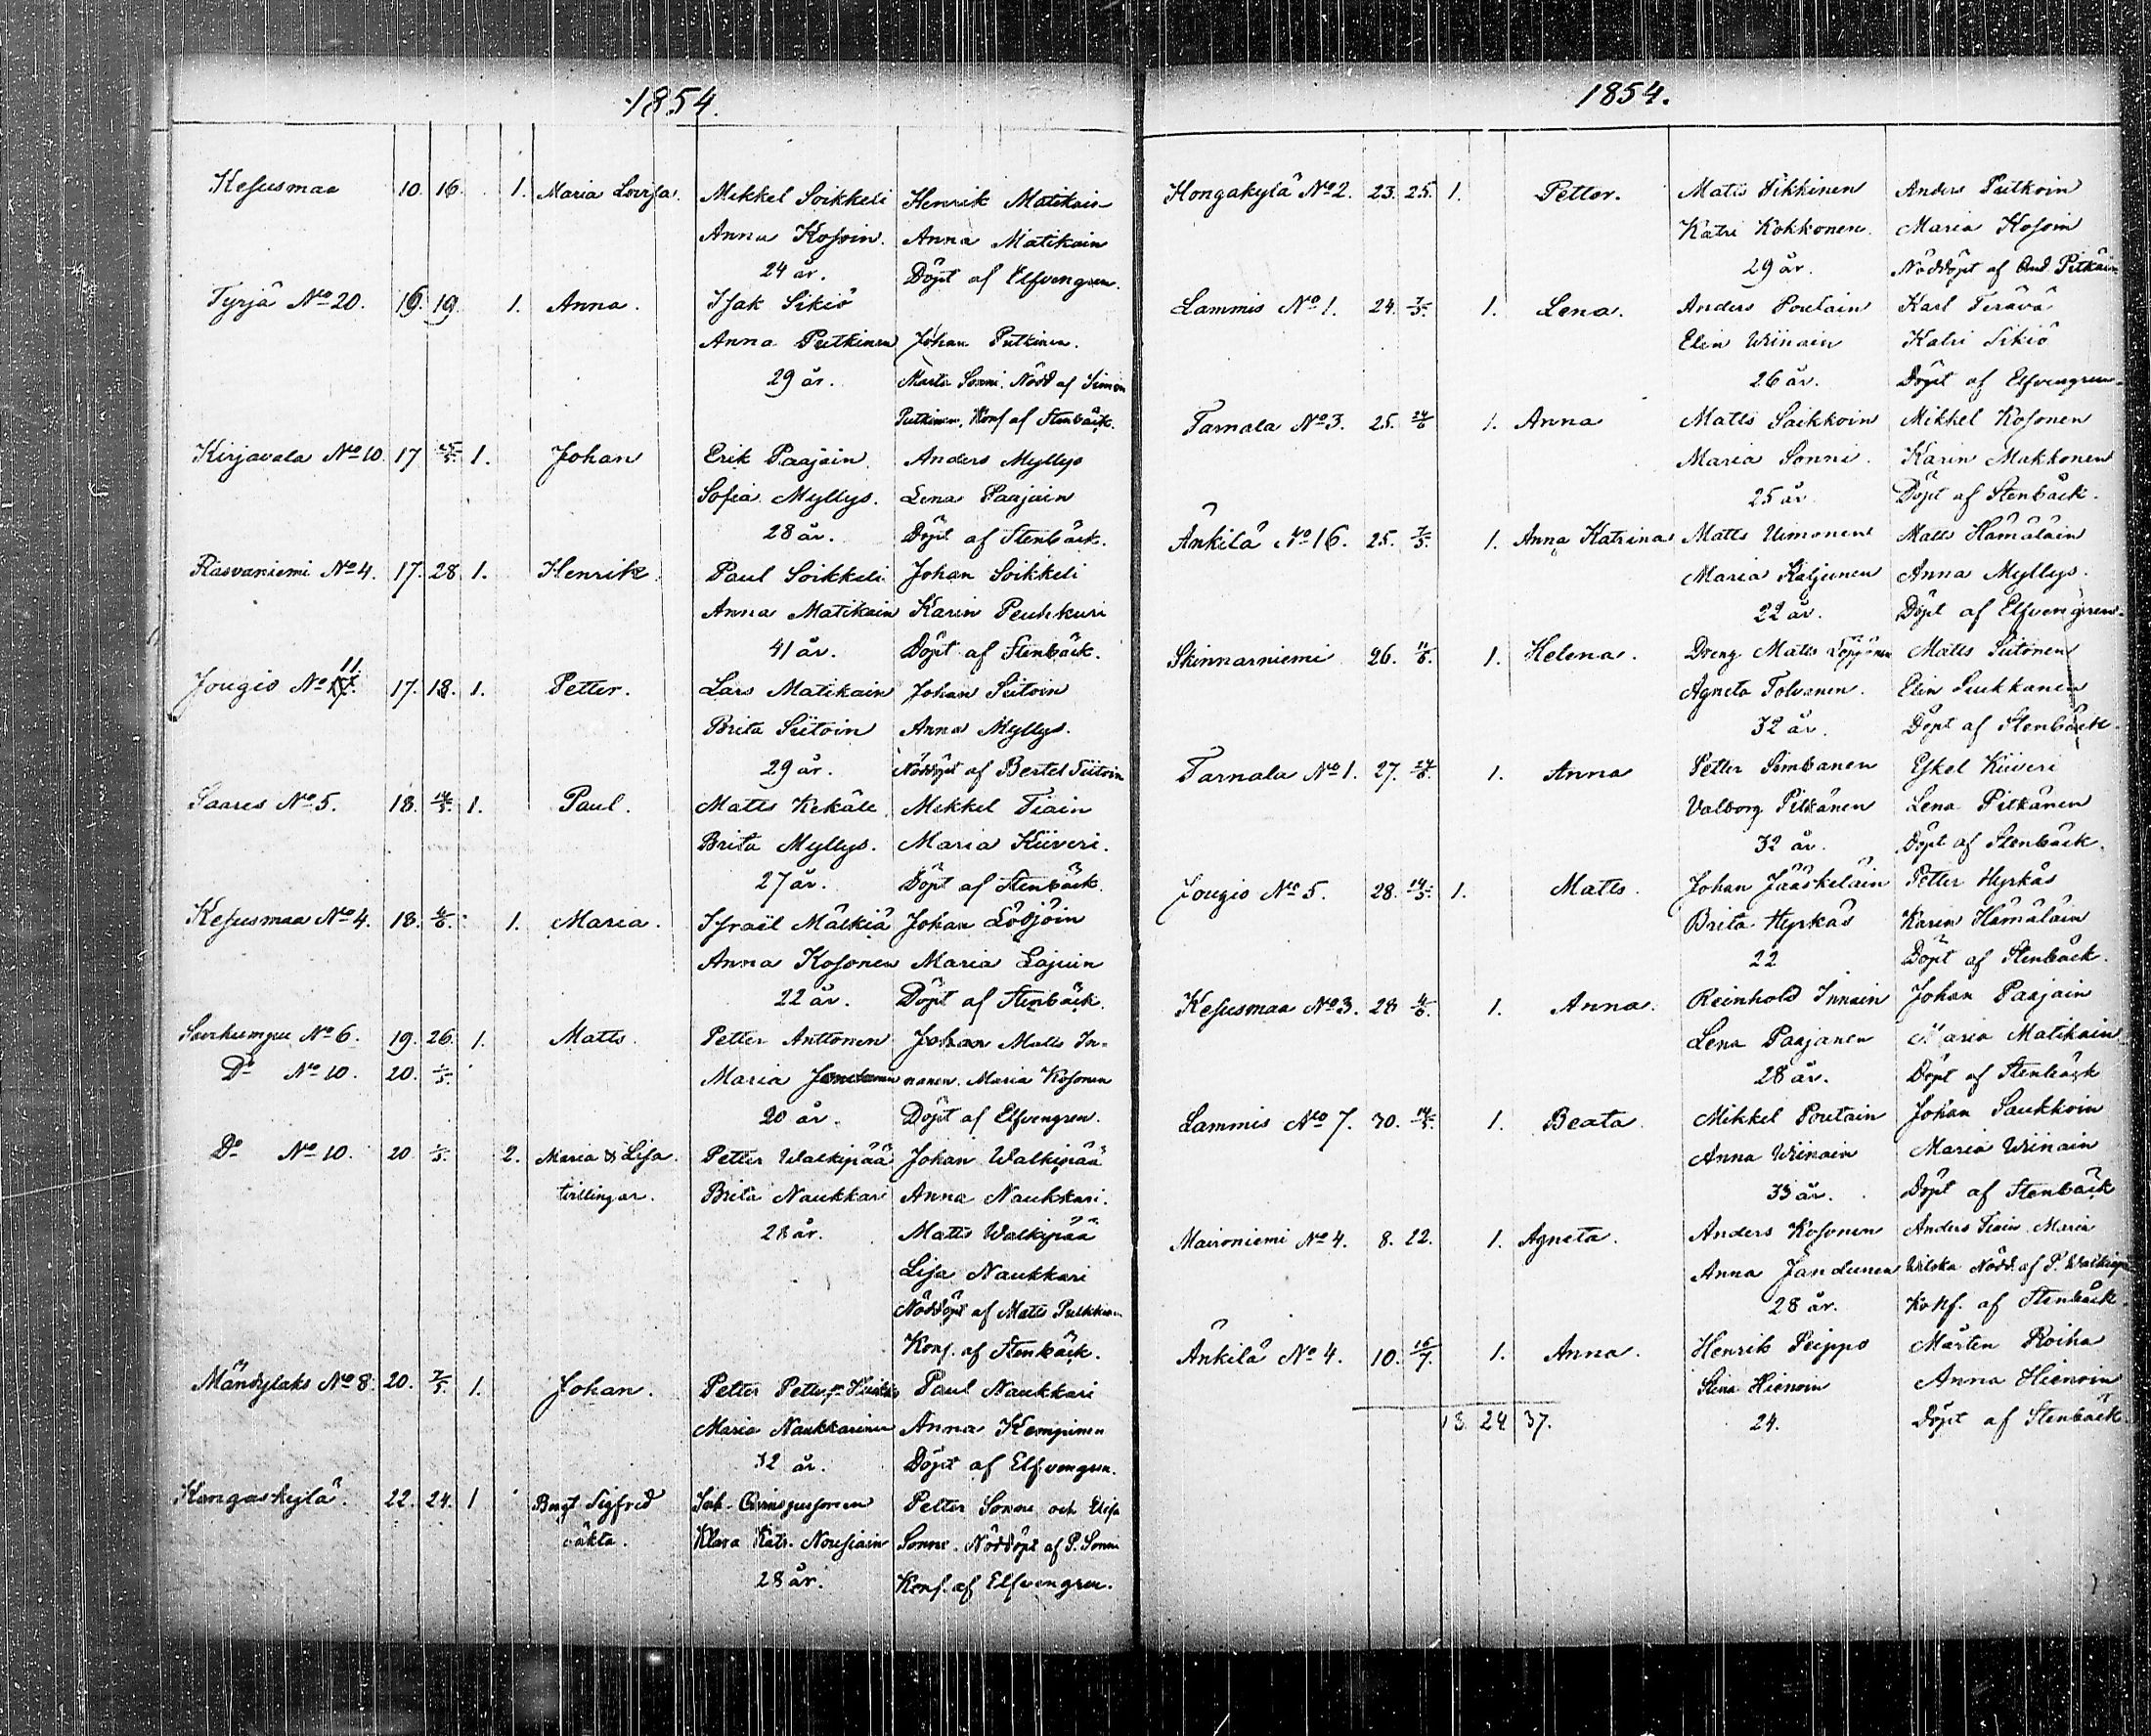 1854.
Kesusmaa 10. 16. 1. Maria Lovisa. Mikkel Soikkeli Henrik Matikain
Anna Kosoin. Anna Matikain
24 år. Döpt af Elfvengren.
Tyrjä No 20. 16. 19. 1. Anna. Isak Sikiö
Anna Putkinen Johan Putkinen.
29 år. Marta Sonni. Nödd af Simon
Putkinen, Konf af Stenbäck.
Kirjavala No 10. 17 1. Johan Erik Paajain Anders Myllys
Sofia Myllys. Lena Paajain
28 år. Döpt af Stenbäck.
Rasvaniemi No 4. 17. 28. 1. Henrik. Paul Soikkeli Johan Soikkeli
Anna Matikain Karin Peuhkuri
41 år. Döpt af Stenbäck.
Jougio No 11. 17. 18. 1. Petter. Lars Matikain Johan Siitoin
Brita Siitoin Anna Myllys.
29 år. Nöddöpt af Bertel Siitoin
Saares No 5. 18. 14/5. 1. Paul. Matts Kekäle. Mikkel Tiain
Brita Myllys. Maria Kiiveri.
27 år. Döpt af Stenbäck.
Kesusmaa No 4. 18. 4/6. 1. Maria. Israël Mälkiä Johan Löppöin
Anna Kosonen Maria Lajuin
22 år. Döpt af Stenbäck.
No 6. 19. 26. 1. Matts. Petter Anttonen Johan Matts In-
Do No 10. 20. Maria nanen. Maria Kosonen
20 år. Döpt af Elfvengren.
Do No 10. 20 2. Maria & Lisa. Petter Walkipää Johan Walkipää
tvillingar. Brita Naukkari Anna Naukkari.
28 år. Matts Walkipää
Lisa Naukkari
Nöddöpt af Matts Pulkkinen
Konf. af Stenbäck.
Mändylaks No 8. 20. 7/5. 1. Johan. Petter Paul Naukkari
Maria Naukkarinen Anna Kemppinen
32 år. Döpt af Elfvengren.
Kangaskylä. 22. 24. 1 Bengt Sigfred Petter Sonni och Elisa
oäkta. Klara Katr. Nousiain Sonni. Nöddöpt af P. Sonni
28 år. Konf. af Elfvengren.
1854.
Hongakylä No 2. 23. 25. 1. Petter. Matts Pikkinen Anders Putkoin
Katri Kokkonen. Maria Kosoin
29 år. Nöddöpt af And. Pitkäin
Lammis No 1. 24. 7/5. 1. Lena. Anders Poutain Karl Terävä
Elin Wiinain Katri Sikiö
26 år. Döpt af Elfvengren.
Tarnala No 3. 25. 24/6 1. Anna Matts Saikkoin Mikkel Kosonen
Maria Sonni. Karin Mukkonen
25 år Döpt af Stenbäck.
Änkilä No 16. 25. 7/5. 1. Anna Katrina Matts Uimonen Matts Hämäläin
Maria Kaljunen Anna Myllys.
22 år. Döpt af Elfvengren.
Skinnarniemi 26. 11/6. 1. Helena. Dreng Matts Löppönen Matts Siitonen
Agneta Tolvanen. Elin Suikkanen
32 år. Döpt af Stenbäck.
Tarnala No 1. 27. 24/6. 1. Anna Petter Simbanen Eskel Kiiveri
Valborg Pitkänen Lena Pitkänen
32 år. Döpt af Stenbäck.
Jougio No 5. 28. 14/5. 1. Matts. Johan Jääskeläin Petter Hyrkäs
Brita Hyrkäs Karin Hämäläin
22 Döpt af Stenbäck.
Kesusmaa No 3. 28 4/6. 1. Anna. Reinhold Innain Johan Paajain
Lena Paajanen Maria Matikain
28 år. Döpt af Stenbäck
Lammis No 7. 30. 14/5. 1. Beata. Mikkel Poutain Johan Saukkoin
Anna Wiinain Maria Wiinain
33 år. Döpt af Stenbäck
Maironiemi No 4. 8. 22. 1. Agneta. Anders Kosonen Anders Tiain Maria
Anna Jandunen Wilska Nödd. af P. Walkiapä
28 år. Konf. af Stenbäck.
Änkilä No 4. 10. 16/7. 1. Anna. Henrik Peippo Mårten Roiha
Stina Hienoin Anna Hienoin
13. 24 37. 24. Döpt af Stenbäck.